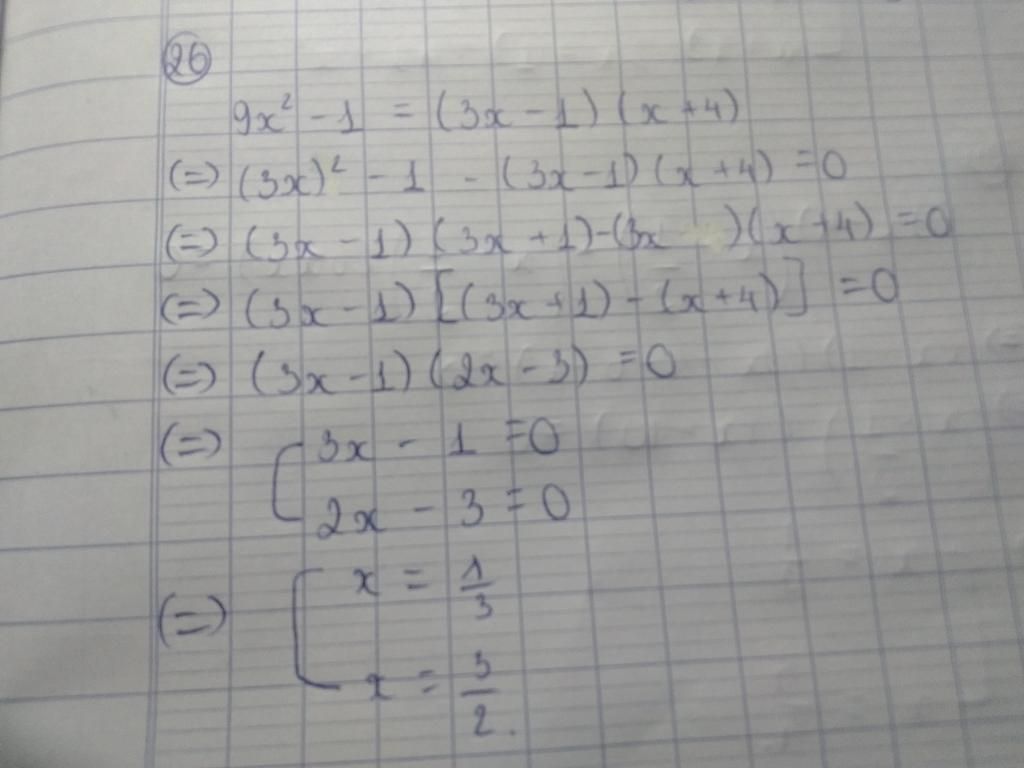 26
9x² - 1 = (3x - 1) (x + 4)
(=) (3x)² - 1 - (3x - 1) (x + 4) = 0
(=) (3x - 1) (3x + 1) - (3x ) (x + 4) = 0
(=) (3x - 1) [(3x + 1) - (x + 4)] = 0
(=) (3x - 1) (2x - 3) = 0
(=) [ 3x - 1 = 0
2x - 3 = 0
(=) [ x = 1/3
x = 3/2.